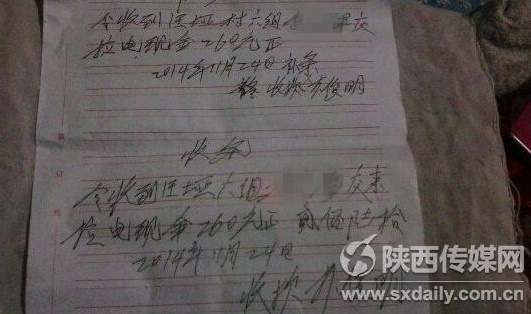 今收到汪垭村六组 交
拉电现金260元正
2014年11月24日
收款 方俊明
收条
今收到汪垭六组 交来
拉电现金260元正 贰佰陆拾
2014年11月24日
收款 方俊明
陕西传媒网
www.sxdaily.com.cn